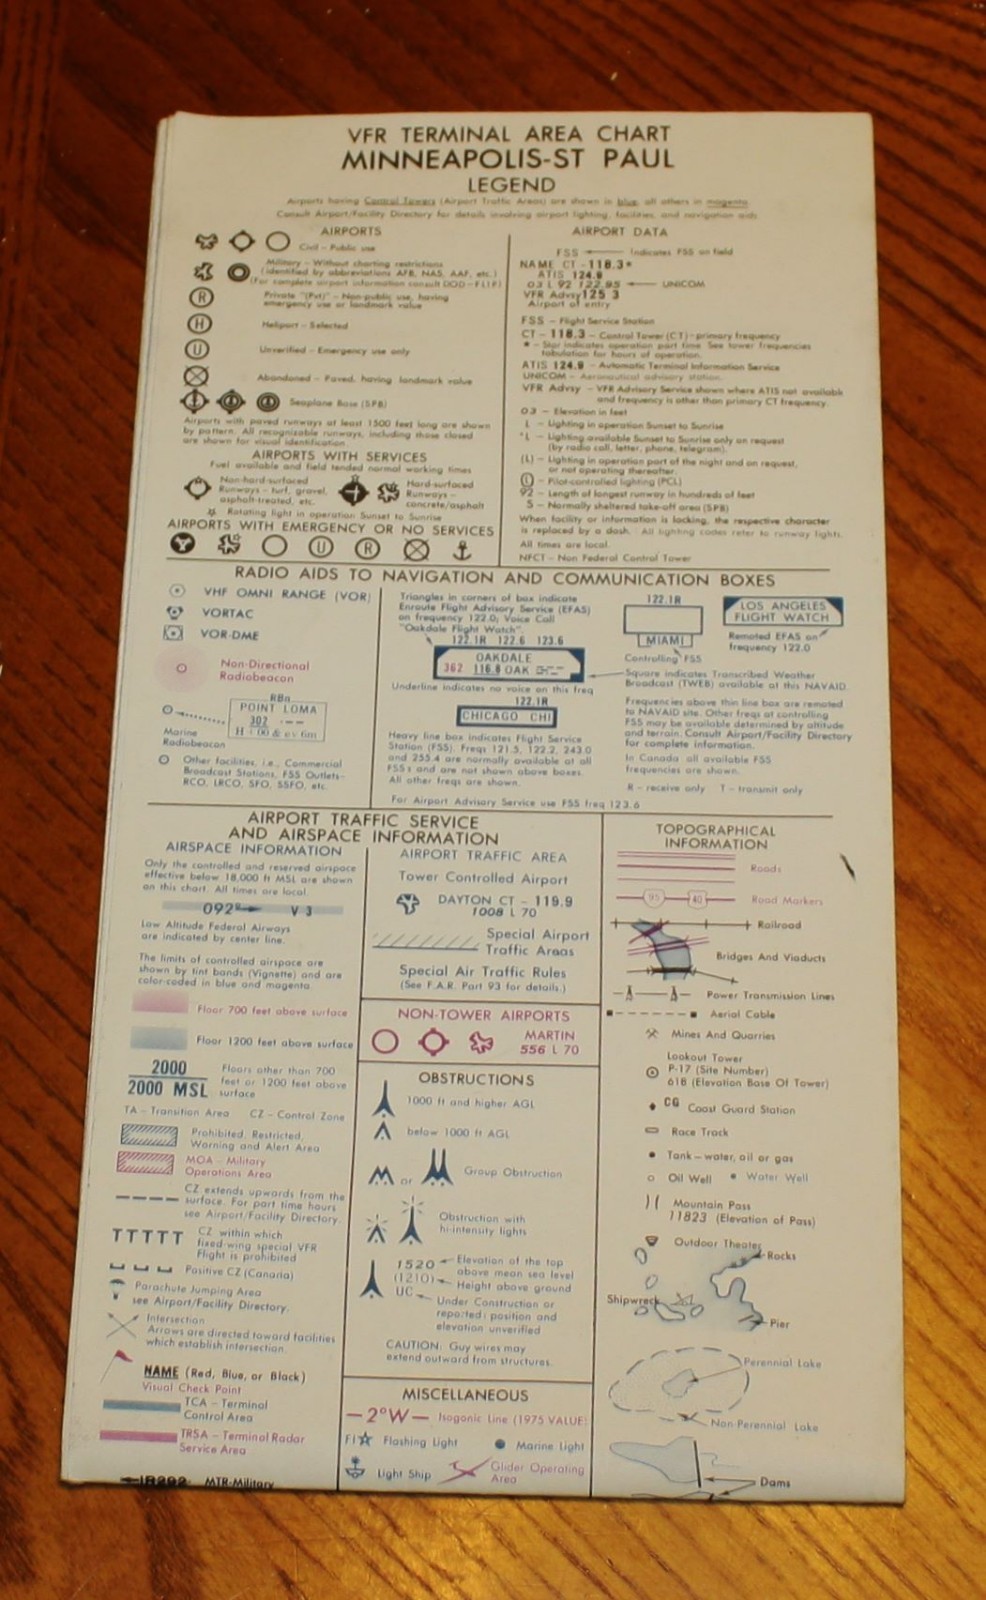 VFR TERMINAL AREA CHART
MINNEAPOLIS-ST PAUL
LEGEND
Airports having Control Towers (Airport Traffic Areas) are shown in blue, all others in magenta
Consult Airport/Facility Directory for details involving airport lighting, facilities, and navigation aids
AIRPORTS
Civil – Public use
Military – Without charting restrictions
(identified by abbreviations AFB, NAS, AAF, etc.)
(For complete airport information consult DOD – FLIP)
R
Private "(Pvt)" – Non-public use, having
emergency use or landmark value
H
Heliport – Selected
U
Unverified – Emergency use only
Abandoned – Paved, having landmark value
Seaplane Base (SPB)
Airports with paved runways at least 1500 feet long are shown
by pattern. All recognizable runways, including those closed
are shown for visual identification.
AIRPORTS WITH SERVICES
Fuel available and field tended normal working times
Non-hard-surfaced
Runways – turf, gravel,
asphalt-treated, etc.
Hard-surfaced
Runways –
concrete/asphalt
Rotating light in operation Sunset to Sunrise
AIRPORTS WITH EMERGENCY OR NO SERVICES
U R
AIRPORT DATA
FSS Indicates FSS on field
NAME CT - 118.3*
ATIS 124.9
03 L 92 122.95 UNICOM
VFR Advsy 125 3
Airport of entry
FSS – Flight Service Station
CT – 118.3 – Control Tower (CT) – primary frequency
* – Star indicates operation part time. See tower frequencies
tabulation for hours of operation.
ATIS 124.9 – Automatic Terminal Information Service
UNICOM – Aeronautical advisory station.
VFR Advsy – VFR Advisory Service shown where ATIS not available
and frequency is other than primary CT frequency.
03 – Elevation in feet
L – Lighting in operation Sunset to Sunrise
*L – Lighting available Sunset to Sunrise only on request
(by radio call, letter, phone, telegram).
(L) – Lighting in operation part of the night and on request,
or not operating thereafter.
L – Pilot-controlled lighting (PCL)
92 – Length of longest runway in hundreds of feet
S – Normally sheltered take-off area (SPB)
When facility or information is lacking, the respective character
is replaced by a dash. All lighting codes refer to runway lights.
All times are local.
NFCT – Non Federal Control Tower
RADIO AIDS TO NAVIGATION AND COMMUNICATION BOXES
VHF OMNI RANGE (VOR)
VORTAC
VOR-DME
Non-Directional
Radiobeacon
RBn
POINT LOMA
302
H + 00 & ev 6m
Marine
Radiobeacon
Other facilities, i.e., Commercial
Broadcast Stations, FSS Outlets-
RCO, LRCO, SFO, SSFO, etc.
Triangles in corners of box indicate
Enroute Flight Advisory Service (EFAS)
on frequency 122.0; Voice Call
"Oakdale Flight Watch".
122.1R 122.6 123.6
OAKDALE
362 116.8 OAK
Underline indicates no voice on this freq
122.1R
CHICAGO CHI
Heavy line box indicates Flight Service
Station (FSS). Freqs 121.5, 122.2, 243.0
and 255.4 are normally available at all
FSSs and are not shown above boxes.
All other freqs are shown.
For Airport Advisory Service use FSS freq 123.6
122.1R
MIAMI
Controlling FSS
LOS ANGELES
FLIGHT WATCH
Remoted EFAS on
frequency 122.0
Square indicates Transcribed Weather
Broadcast (TWEB) available at this NAVAID.
Frequencies above thin line box are remoted
to NAVAID site. Other freqs at controlling
FSS may be available determined by altitude
and terrain. Consult Airport/Facility Directory
for complete information.
In Canada all available FSS
frequencies are shown.
R – receive only T – transmit only
AIRPORT TRAFFIC SERVICE
AND AIRSPACE INFORMATION
AIRSPACE INFORMATION
Only the controlled and reserved airspace
effective below 18,000 ft MSL are shown
on this chart. All times are local.
092° V 3
Low Altitude Federal Airways
are indicated by center line.
The limits of controlled airspace are
shown by tint bands (Vignette) and are
color-coded in blue and magenta
Floor 700 feet above surface
Floor 1200 feet above surface
2000
2000 MSL
Floors other than 700
feet or 1200 feet above
surface
TA – Transition Area CZ – Control Zone
Prohibited, Restricted,
Warning and Alert Area
MOA – Military
Operations Area
CZ extends upwards from the
surface. For part time hours
see Airport/Facility Directory.
TTTTT
CZ within which
fixed-wing special VFR
Flight is prohibited
Positive CZ (Canada)
Parachute Jumping Area
see Airport/Facility Directory.
Intersection
Arrows are directed toward facilities
which establish intersection.
NAME (Red, Blue, or Black)
Visual Check Point
TCA – Terminal
Control Area
TRSA – Terminal Radar
Service Area
IR292 MTR-Military
AIRPORT TRAFFIC AREA
Tower Controlled Airport
DAYTON CT – 119.9
1008 L 70
Special Airport
Traffic Areas
Special Air Traffic Rules
(See F.A.R. Part 93 for details.)
NON-TOWER AIRPORTS
MARTIN
556 L 70
OBSTRUCTIONS
1000 ft and higher AGL
below 1000 ft AGL
or Group Obstruction
Obstruction with
hi-intensity lights
1520 Elevation of the top
above mean sea level
(1210) Height above ground
UC Under Construction or
reported: position and
elevation unverified
CAUTION: Guy wires may
extend outward from structures.
MISCELLANEOUS
–2°W– Isogonic Line (1975 VALUE)
Fl Flashing Light
Marine Light
Light Ship
Glider Operating
Area
TOPOGRAPHICAL
INFORMATION
Roads
95 40 Road Markers
Railroad
Bridges And Viaducts
Power Transmission Lines
Aerial Cable
Mines And Quarries
Lookout Tower
P-17 (Site Number)
618 (Elevation Base Of Tower)
CG Coast Guard Station
Race Track
Tank – water, oil or gas
Oil Well Water Well
Mountain Pass
11823 (Elevation of Pass)
Outdoor Theater
Rocks
Shipwreck
Pier
Perennial Lake
Non-Perennial Lake
Dams